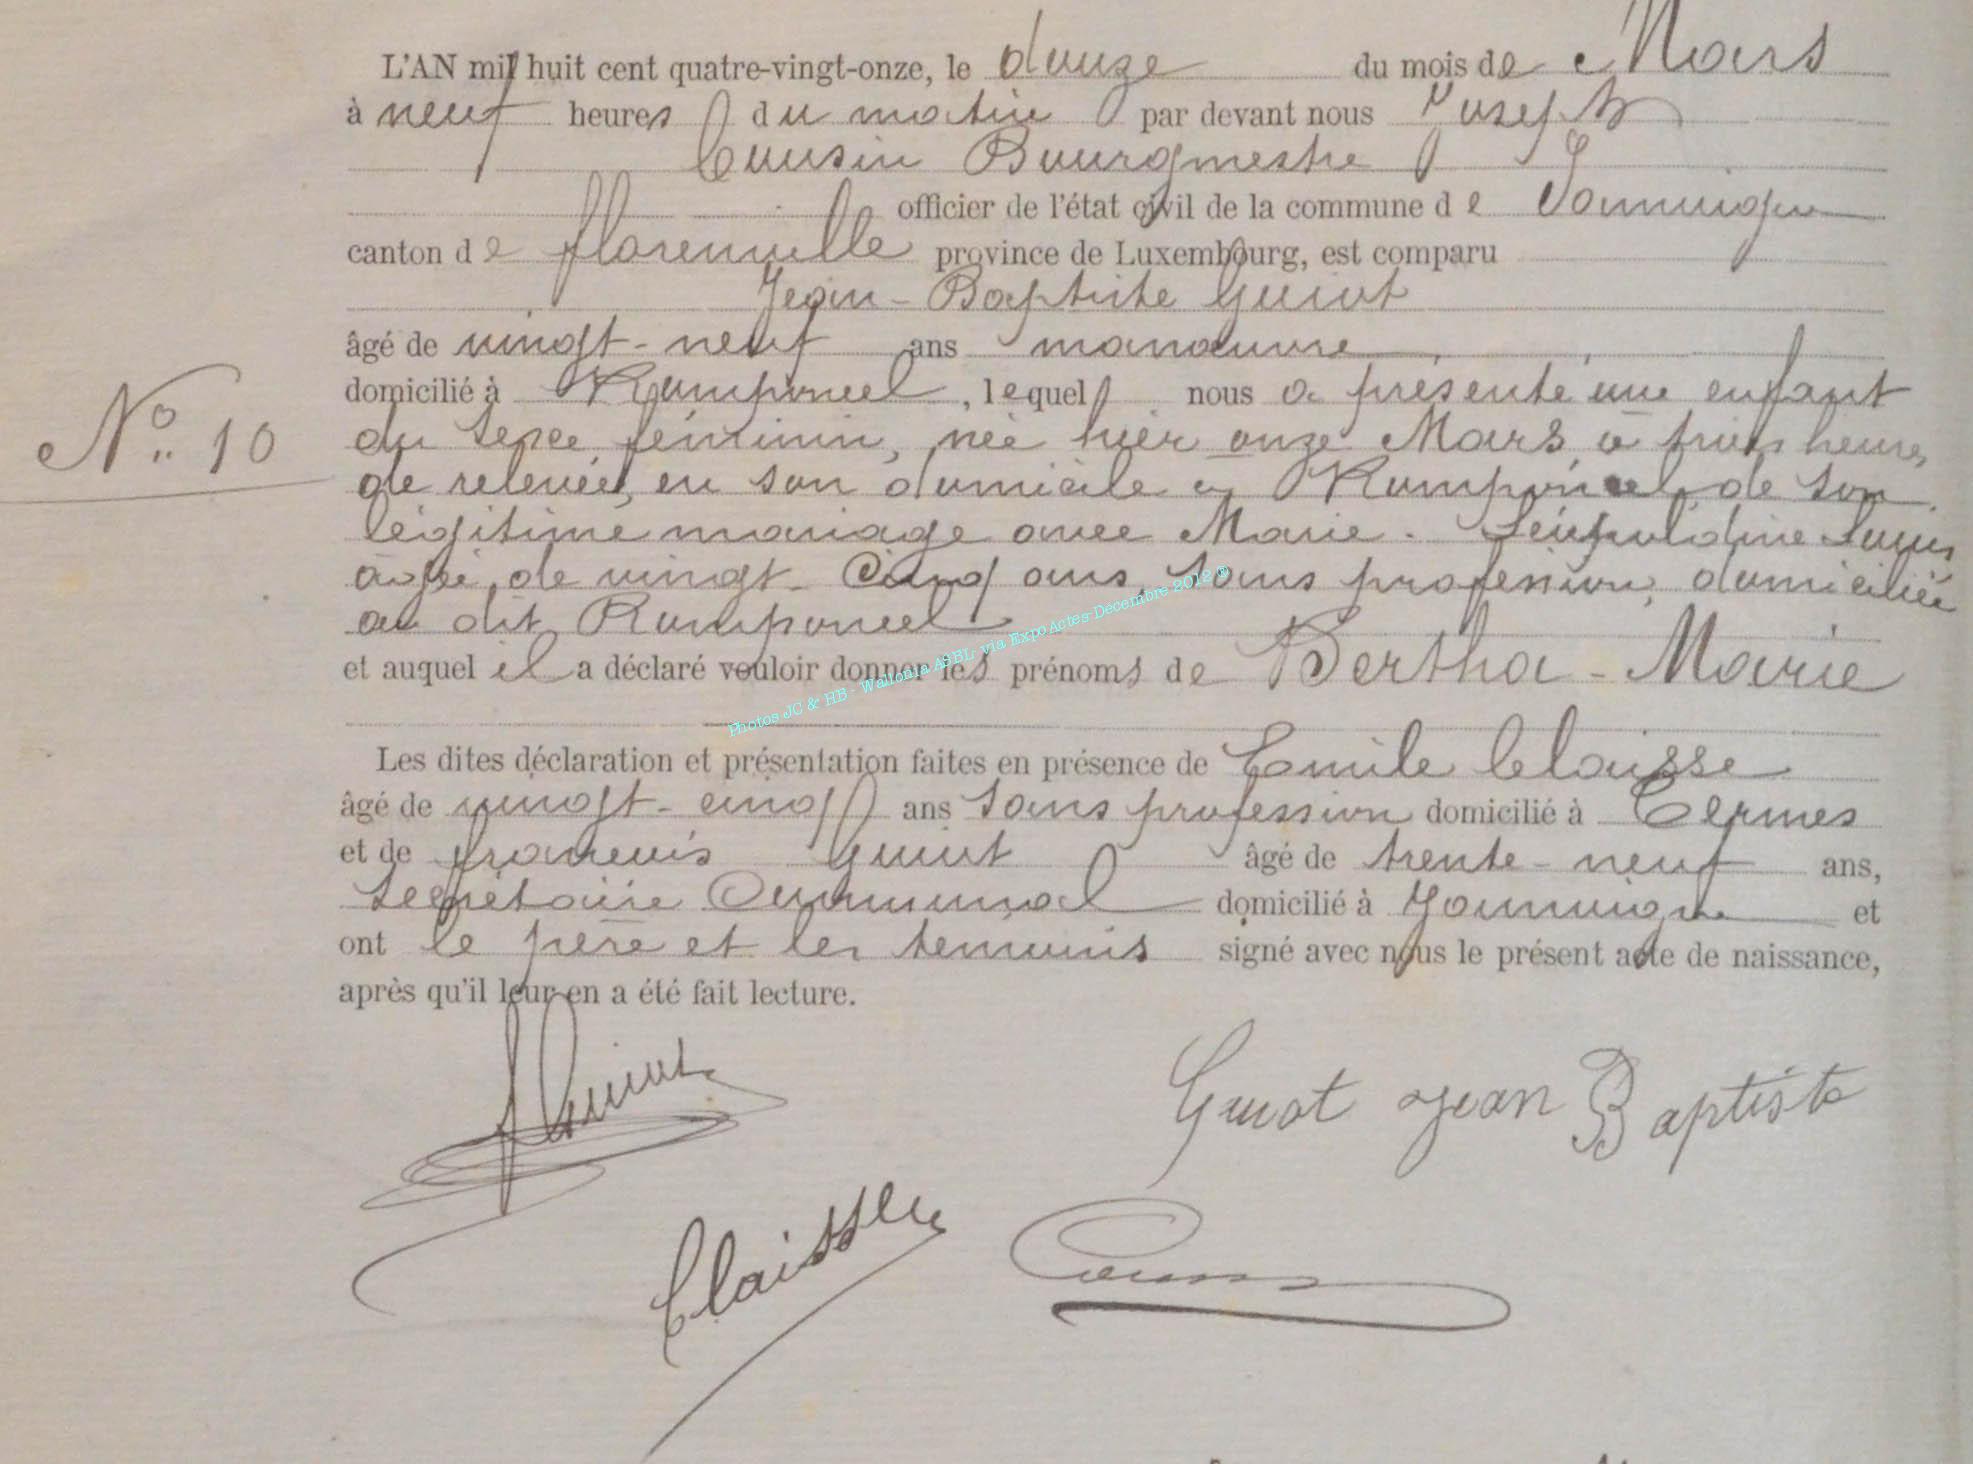 L'AN mil huit cent quatre-vingt-onze, le douze du mois de Mars
à neuf heures du matin par devant nous Joseph
Cousin Bourgmestre
officier de l'état civil de la commune de Jamoigne
canton de florenville province de Luxembourg, est comparu
Jean-Baptiste Guiot
âgé de vingt-neuf ans manoeuvre
domicilié à Romponcel, lequel nous a présenté une enfant
du sexe féminin, née hier onze Mars, à trois heures
de relevée, en son domicile à Romponcel, de son
légitime mariage avec Marie-Léopoldine
âgée de vingt-Cinq ans, sans profession, domiciliée
au dit Romponcel
et auquel il a déclaré vouloir donner les prénoms de Bertha-Marie
Photos JC & HB - Wallonia ASBL via ExpoActes-Décembre 2012 ©
Les dites déclaration et présentation faites en présence de Emile Claisse
âgé de vingt-cinq ans sans profession domicilié à Termes
et de françois Guiot âgé de trente-neuf ans,
N° 10
Secrétaire Communal domicilié à Jamoigne et
ont le père et les temoins signé avec nous le présent acte de naissance,
après qu'il leur en a été fait lecture.
Guiot
Guiot Jean Baptiste
Claisse
Cousin